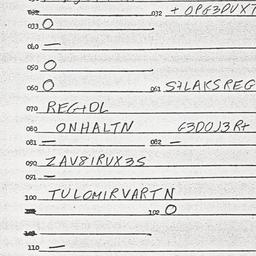 032 + OPG3DUXT
033 O
040 —
050 O
060 O 061 S7LAKSREG
070 REG+DL
080 ONHALTN G3DOJ3R+
081 — 082 —
090 ZAV8IRUX3S
091 —
100 TULOMIRVARTN
102 O
110 —